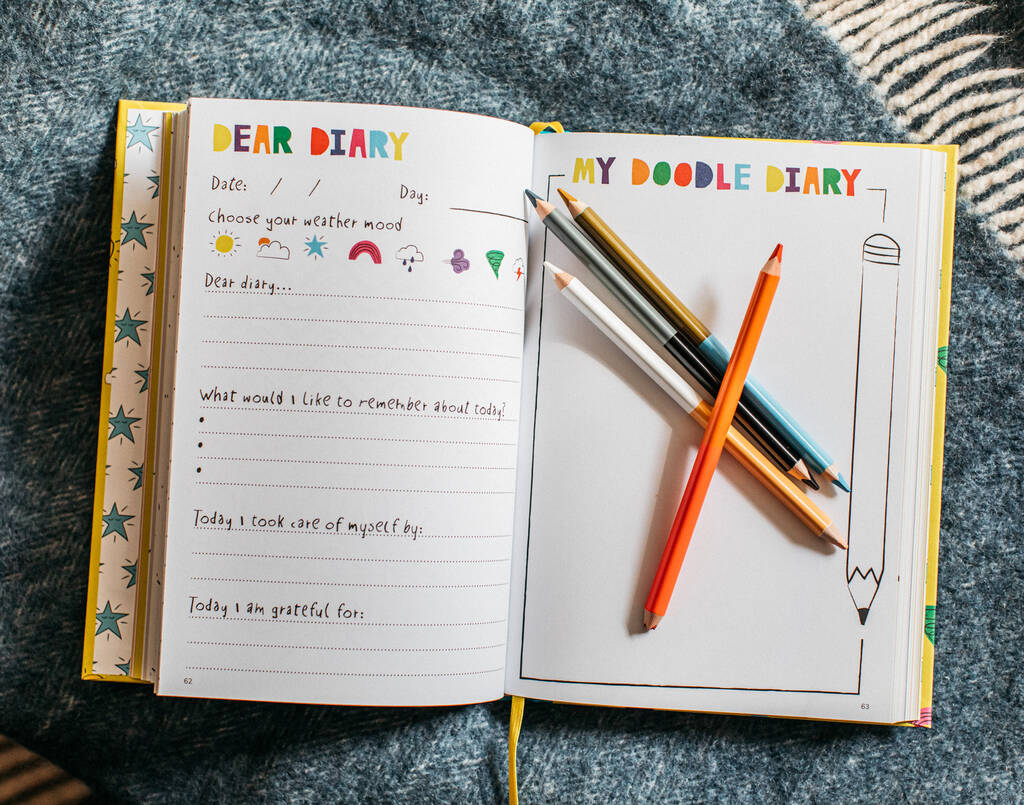 DEAR DIARY
Date: / / Day:
Choose your weather mood
Dear diary...
What would I like to remember about today?
Today I took care of myself by:
Today I am grateful for:
62
MY DOODLE DIARY
63